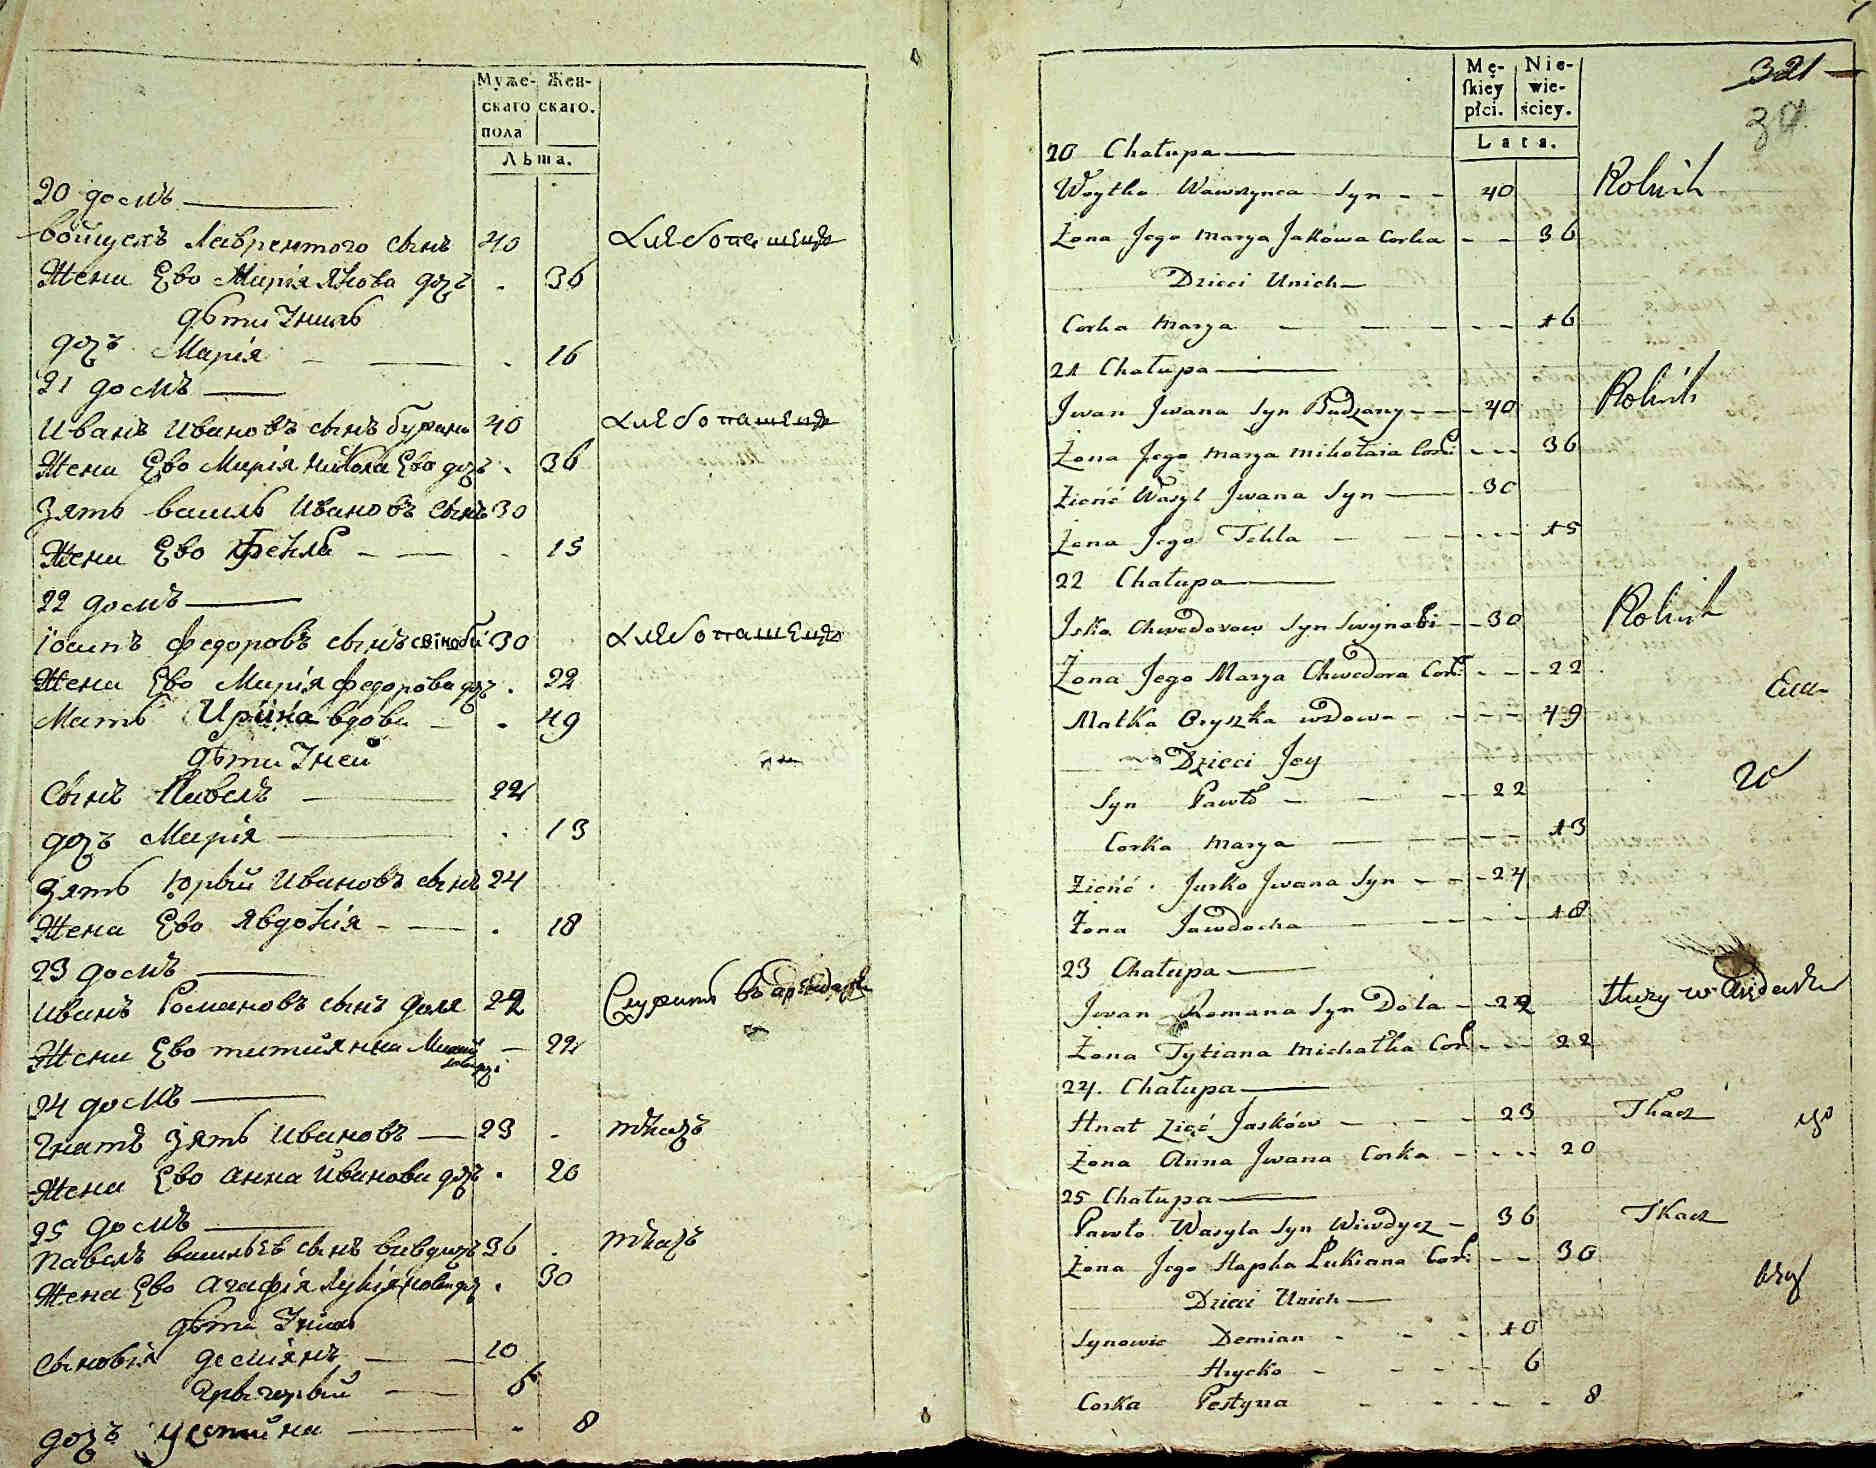 Муже-
скаго
пола
Жен-
скаго.
Лѣта.
20 домъ
войцехъ Лаврентого сынъ 40 Хлебопашецъ
Жена Ево Марія Якова доч 36
дѣти Унихъ
дочъ Марія 16
21 домъ
Иванъ Ивановъ сынъ 40 Хлебопашецъ
Жена Ево Марія Никола Ева доч 36
Зять василь Ивановъ сынъ 30
Жена Ево Фекла 15
22 домъ
Іосипъ федоровъ сынъ свіноби 30 Хлебопашецъ
Жена Ево Марія федорова доч 22
Мать Ирина вдова 49
дѣти Уней
Сынъ Павелъ 22
дочъ Марія 13
Зять Юрьи Ивановъ сынъ 24
Жена Ево Явдокія 18
23 домъ
Иванъ Романовъ сынъ доля 22 Служитъ въ арендаря
Жена Ево титиянна 22
24 домъ
Гнатъ зять Ивановъ 23 ткачъ
Жена Ево Анна Иванова доч 20
25 домъ
Павелъ васильевъ сынъ вивдичъ 36 ткачъ
Жена Ево Агафія Лукіянова доч 30
дѣти Унихъ
Сыновія деміянъ 10
Григорьи 6
дочъ Устийна 8
Mę-
skiey
płci.
Nie-
wie-
ściey.
Lata.
321
20 Chałupa
Woytko Wawrzynca Syn 40 Rolnik
Żona Jego Marya Jakowa Corka 36
Dzieci Unich
Corka Marya 16
21 Chałupa
Jwan Jwana Syn Budzany 40 Rolnik
Żona Jego Marya Mikołaia Cor: 36
Zienć Wasyl Jwana Syn 30
Żona Jego Tekla 15
22 Chałupa
Jsko Chwedorow Syn Swynobi 30 Rolnik
Żona Jego Marya Chwedora Cor: 22
Matka Oryszka wdowa 49
Dzieci Jey
Syn Pawło 22
Corka Marya 13
Zienć Jurko Jwana Syn 24
Żona Jawdocha 18
23 Chałupa
Jwan Romana Syn Dola 22 Służy w
Żona Tytiana Michałka Cor: 22
24. Chałupa
Hnat zięć Jasków 23 Tkacz
Żona Anna Jwana Corka 20
25 Chałupa
Pawło Wasyla Syn Wiwdycz 36 Tkacz
Żona Jego Hapka Łukiana Cor: 30
Dzieci Unich
Synowie Demian 10
Hrycko 6
Corka Pestyna 8